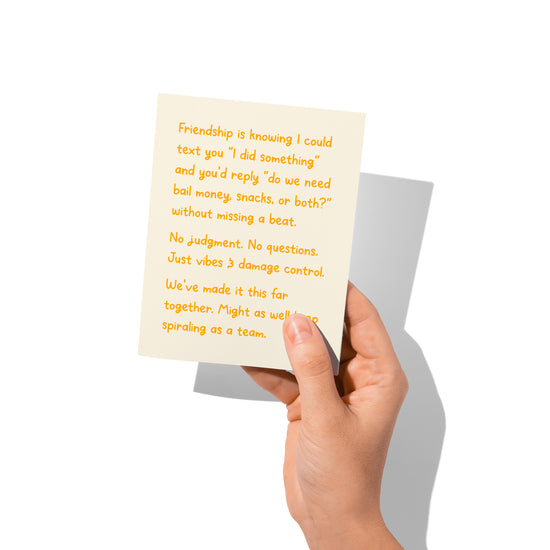 Friendship is knowing I could
text you "I did something"
and you'd reply "do we need
bail money, snacks, or both?"
without missing a beat.
No judgment. No questions.
Just vibes & damage control.
We've made it this far
together. Might as well
spiraling as a team.